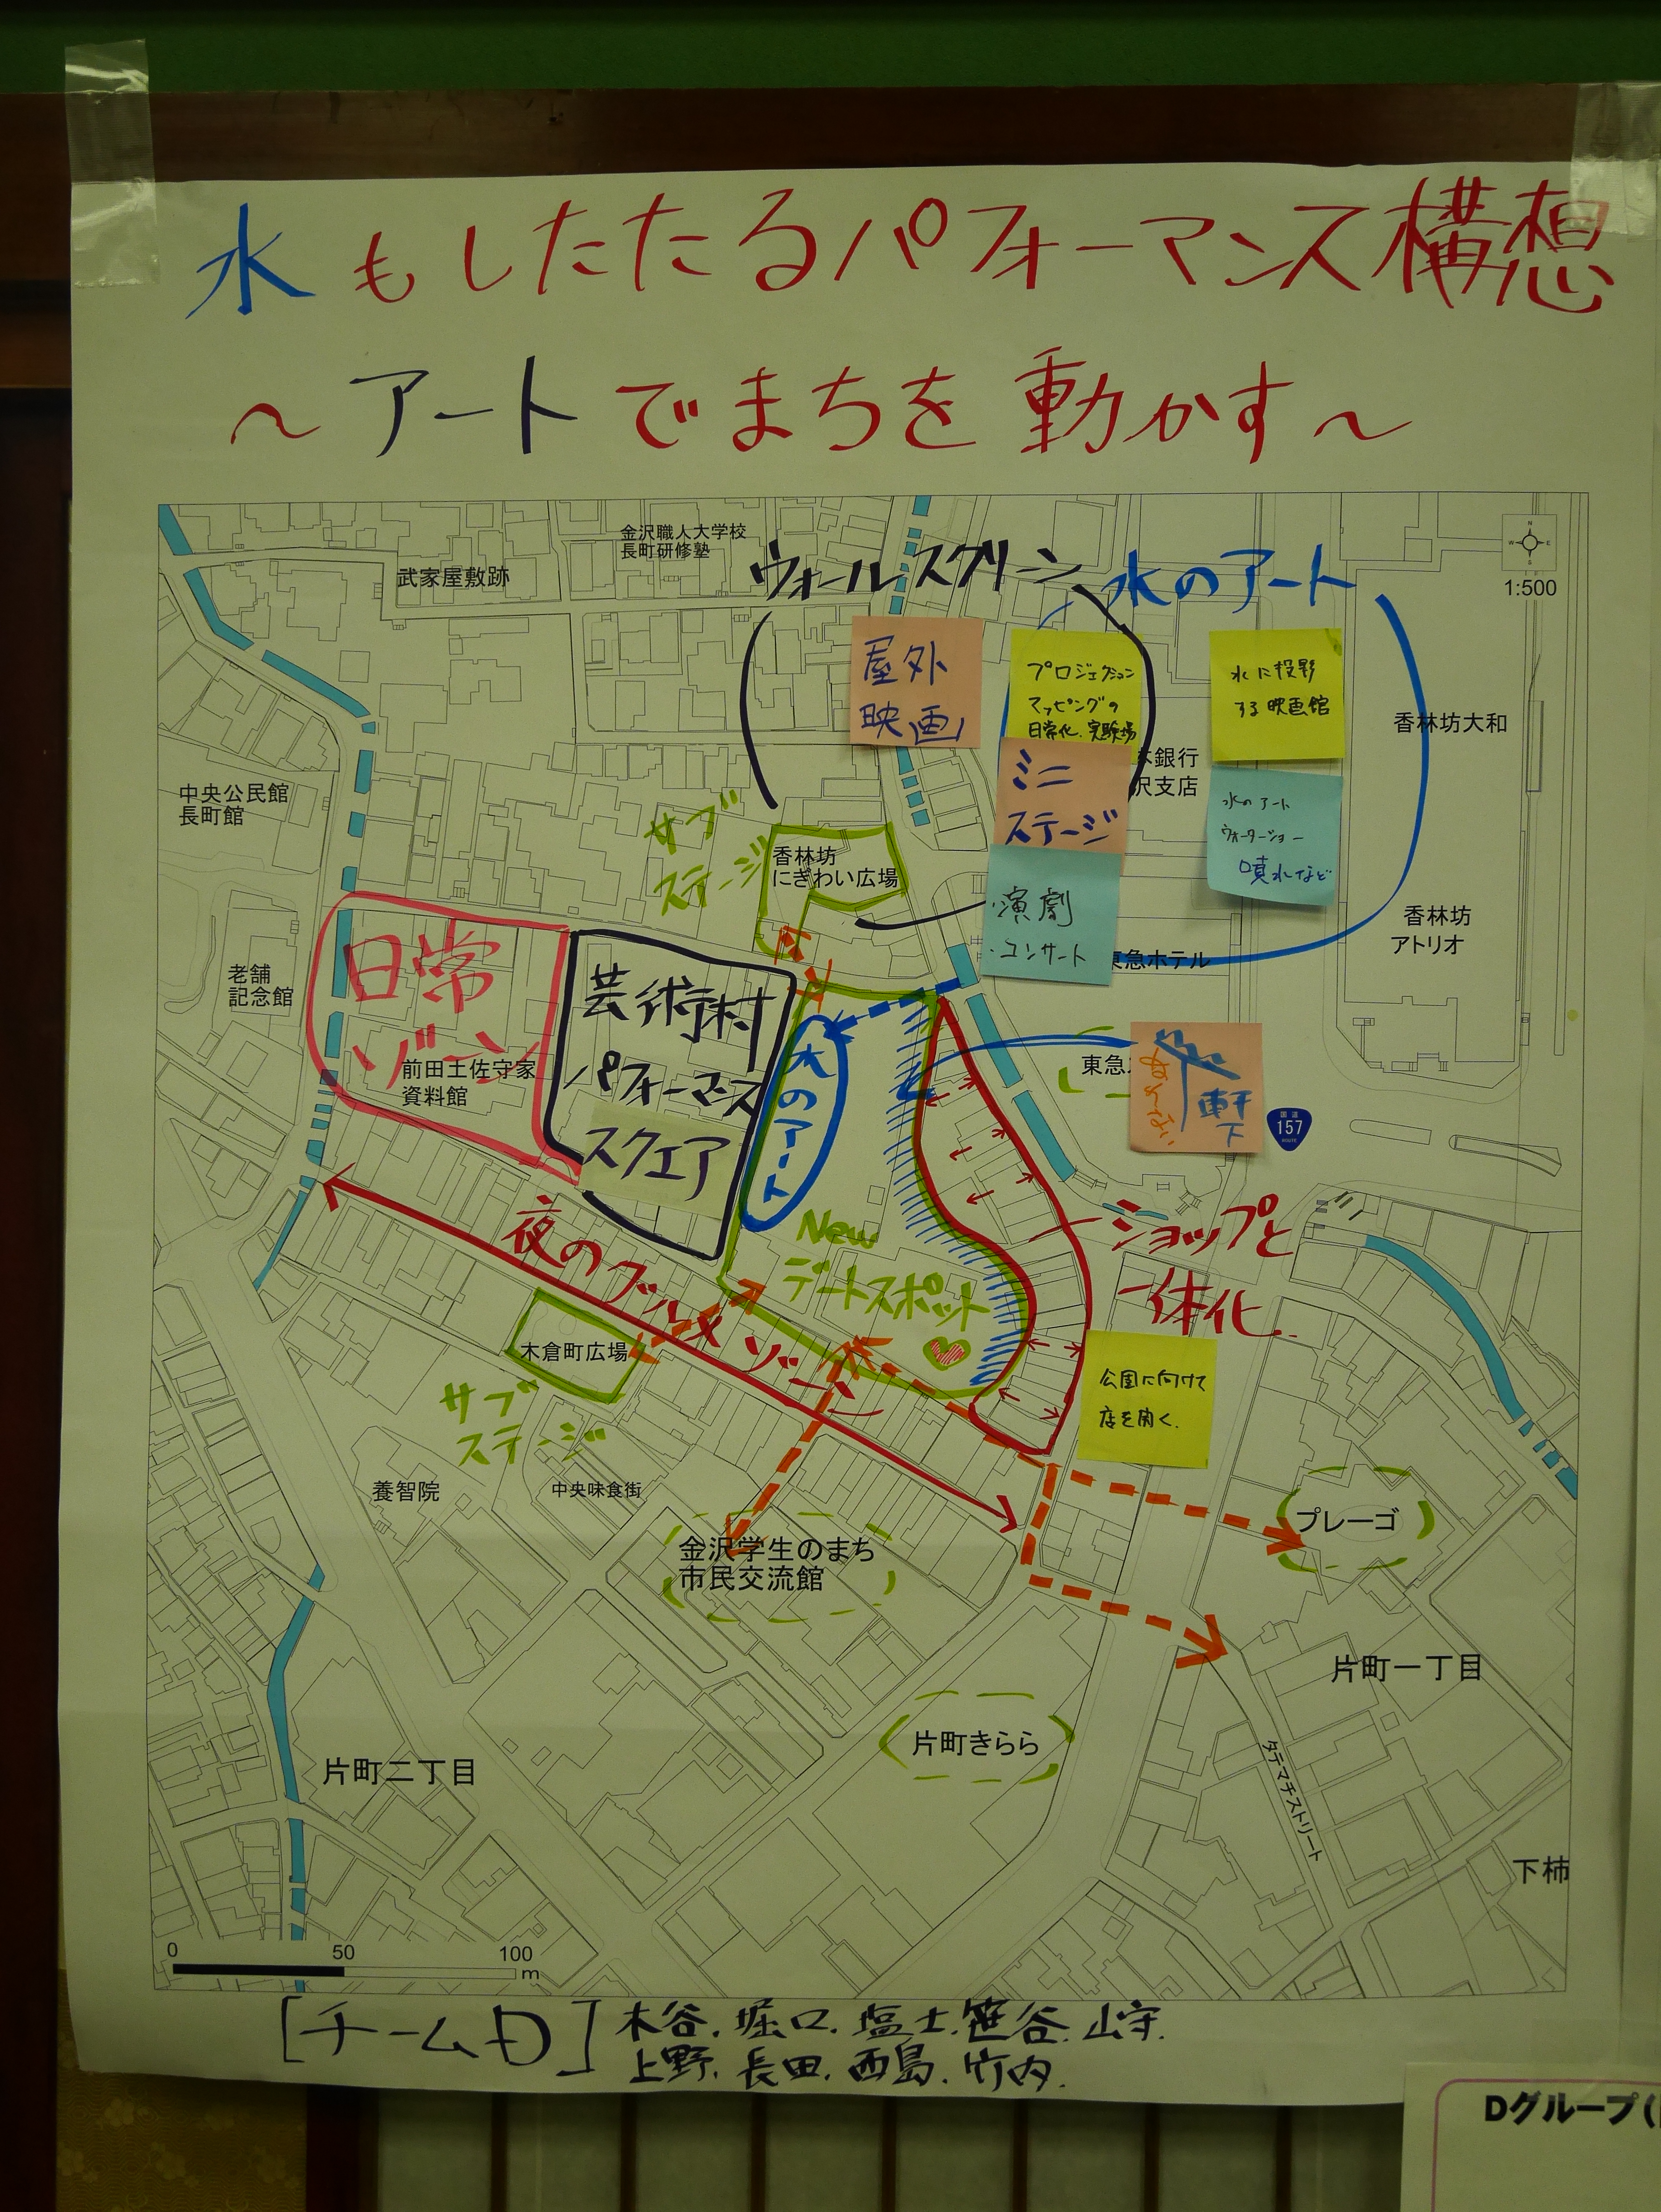 水もしたたるパフォーマンス構想
～アートでまちを動かす～
金沢職人大学校
長町研修塾
武家屋敷跡
ウォールスクリーン
水のアート
N
W
E
S
1:500
屋外
映画
プロジェクション
マッピングの
日常化、実験場
水に投影
する映画館
香林坊大和
ミニ
ステージ
銀行
沢支店
水のアート
ウォーターショー
噴水など
中央公民館
長町館
サブ
ステージ
香林坊
にぎわい広場
・演劇
・コンサート
香林坊
アトリオ
東急ホテル
日常
ゾーン
芸術村
パフォーマンス
スクエア
老舗
記念館
前田土佐守家
資料館
水のアート
東急
ぬれない
軒下
国道
157
ROUTE
ショップと
一体化
夜のグルメゾーン
New
デートスポット
木倉町広場
サブ
ステージ
公園に向けて
店を開く.
養智院
中央味食街
金沢学生のまち
市民交流館
プレーゴ
片町一丁目
片町きらら
片町二丁目
タテマチストリート
下柿
0 50 100
m
[チームD] 木谷.堀口.塩士.笹谷.山守.
上野.長田.西島.竹内.
Dグループ(